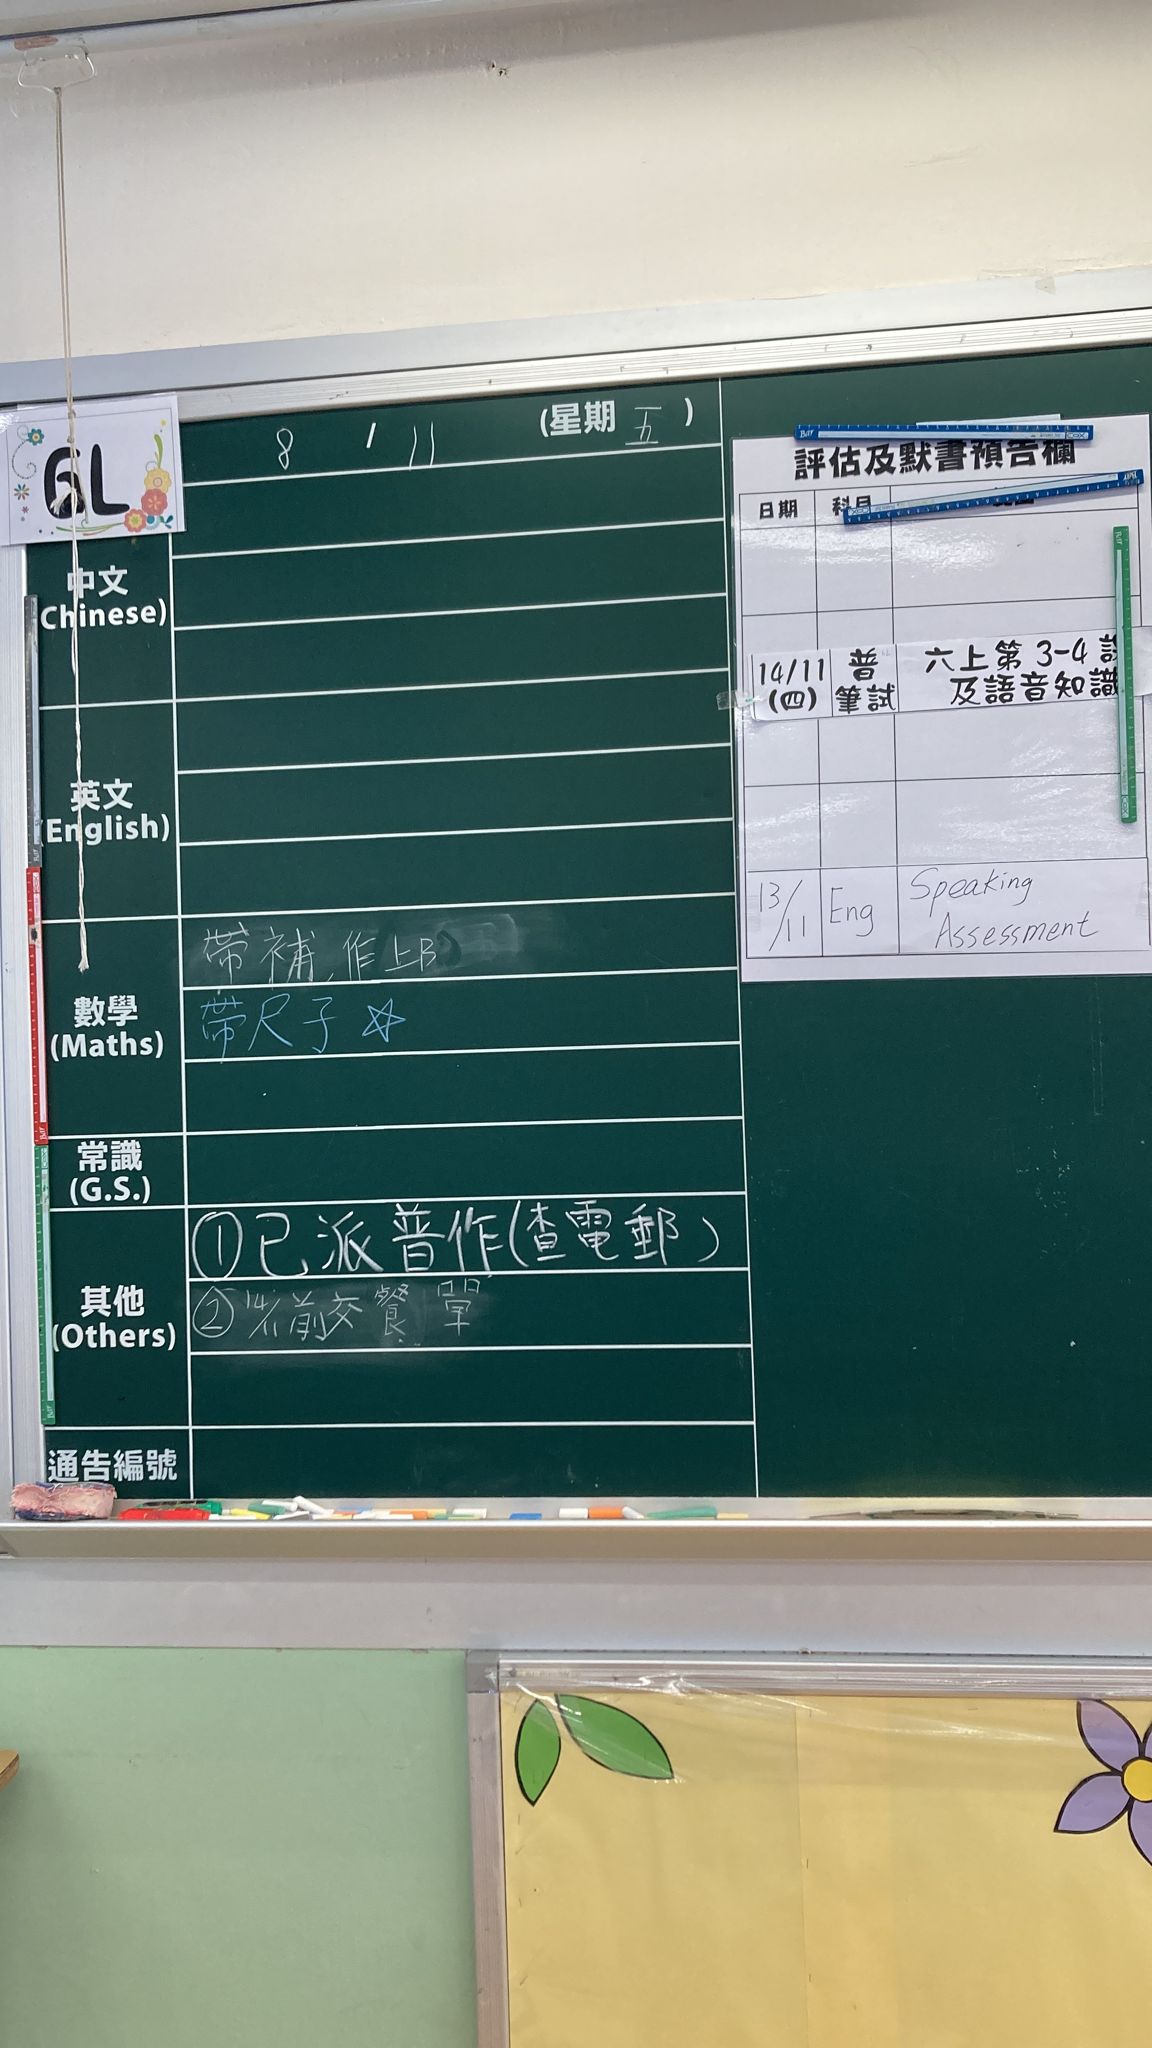 6L
8 / 11 (星期 五)
中文
(Chinese)
英文
(English)
數學
(Maths)
帶補,作上B
帶尺子☆
常識
(G.S.)
其他
(Others)
①已派普作(查電郵)
②14/11前交餐單
通告編號
評估及默書預告欄
日期 科目
14/11 普 六上第3-4課
(四) 筆試 及語音知識
13/11 Eng Speaking
Assessment